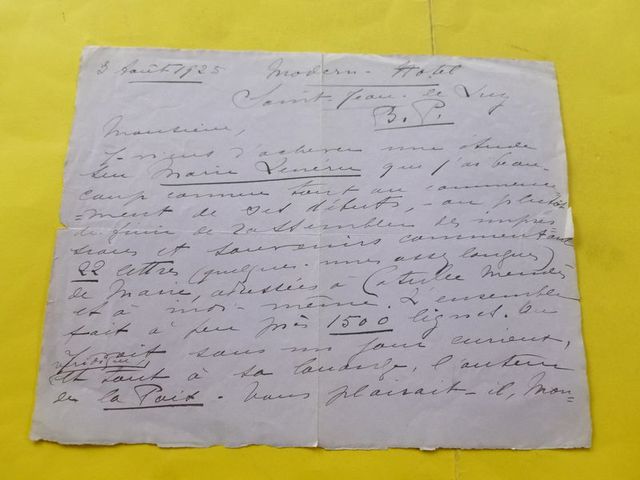 3 Août 1925 Modern-Hotel
Saint-Jean-de Luz
B. P.
Monsieur,
Je viens d'achever une étude
sur Marie Lenéru que j'ai beau-
coup connue tout au commence
=ment de ses débuts, - ou plutôt
de finir de rassembler des impres
sions et souvenirs commentant
22 lettres (quelques-unes assez longues)
de Marie, adressées à Catulle Mendès
et à moi-même. L'ensemble
fait à peu près 1500 lignes. On
y voit sous un jour curieux,
et tout à sa louange, l'auteur
de la Paix. Vous plairait-il, Mon=